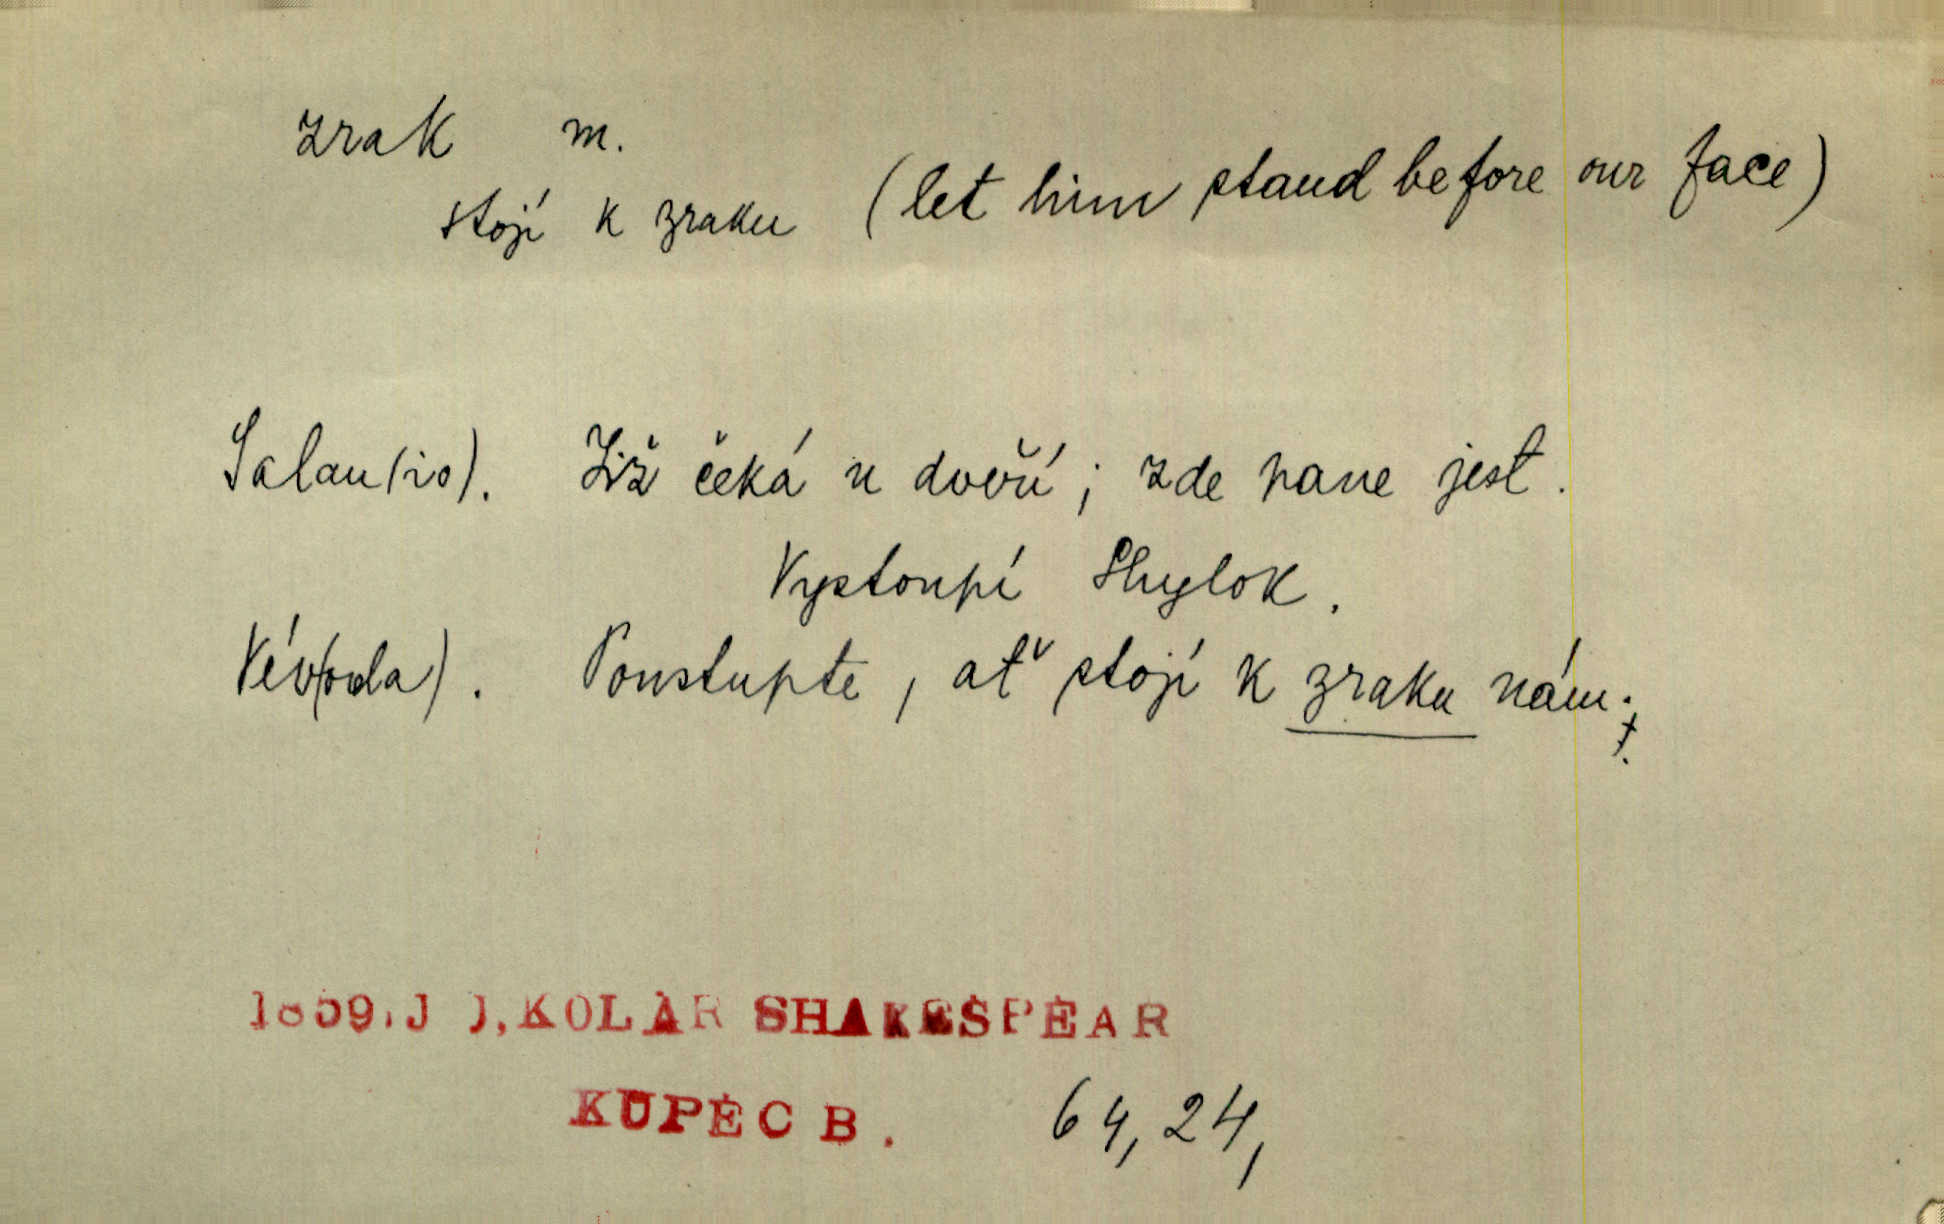 zrak m.
stojí k zraku (let him stand before our face)
Salan(io). Již čeká u dveří; zde pane jest.
Vystoupí Shylok.
Vév(oda). Poustupte, ať stojí k zraku nám.
1859, J J, KOLAR SHAKESPEAR
KUPEC B. 64, 24,